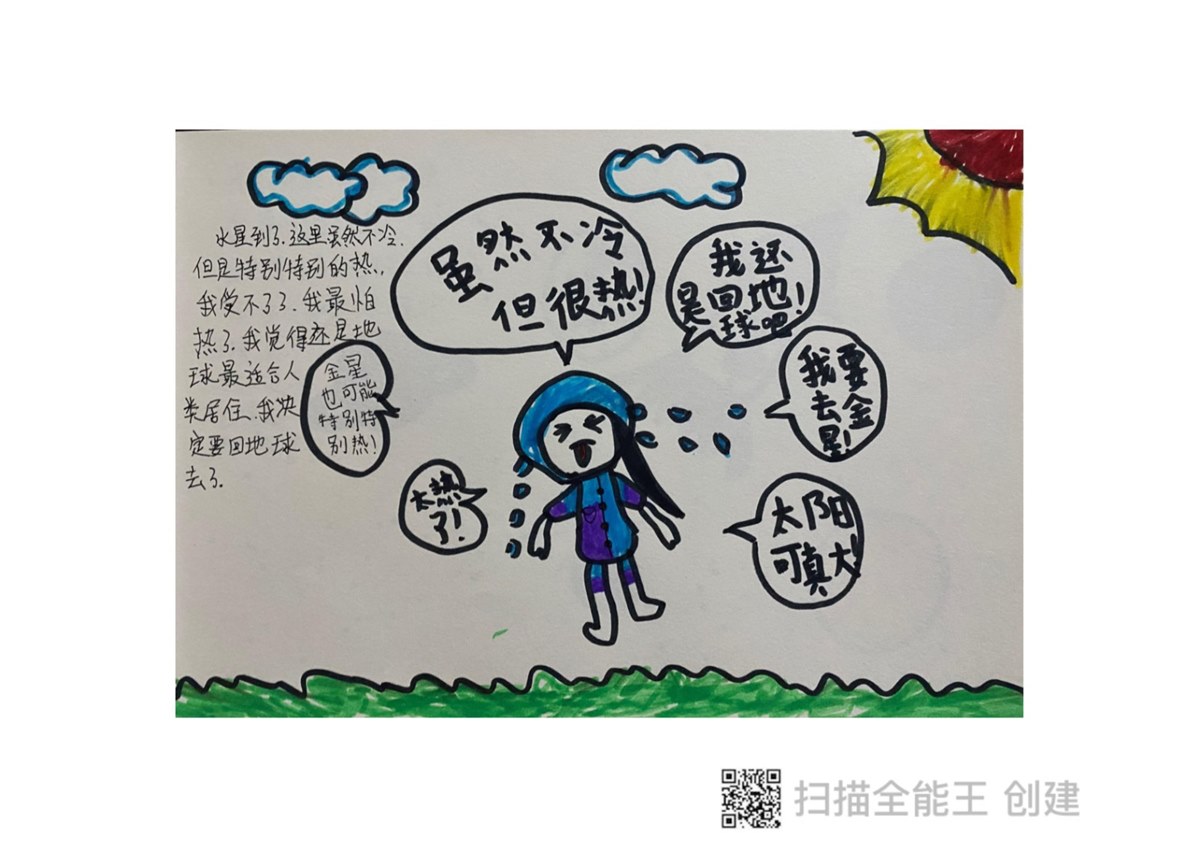 水星到了.这里虽然不冷.
但是特别特别的热,
我受不了了.我最怕
热了.我觉得还是地
球最适合人
类居住.我决
定要回地球
去了.
虽然不冷
但很热!
我还
是回地!
球吧
我要
去金
星!
金星
也可能
特别特
别热!
太热
了!
太阳
可真大!
扫描全能王 创建